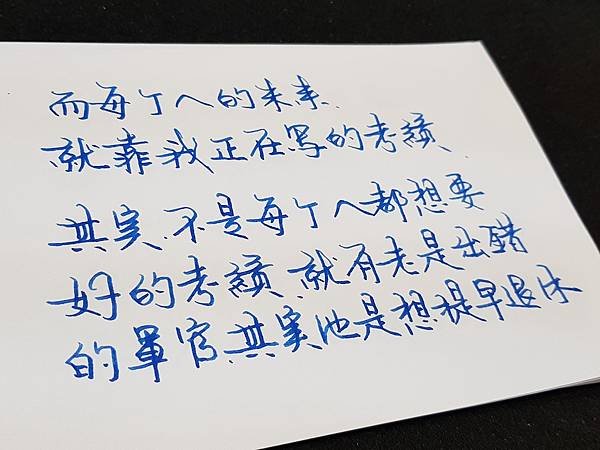 而每个人的未来
就靠我正在写的考績
其实不是每个人都想要
好的考績就有老是出錯
的軍官其实他是想提早退休